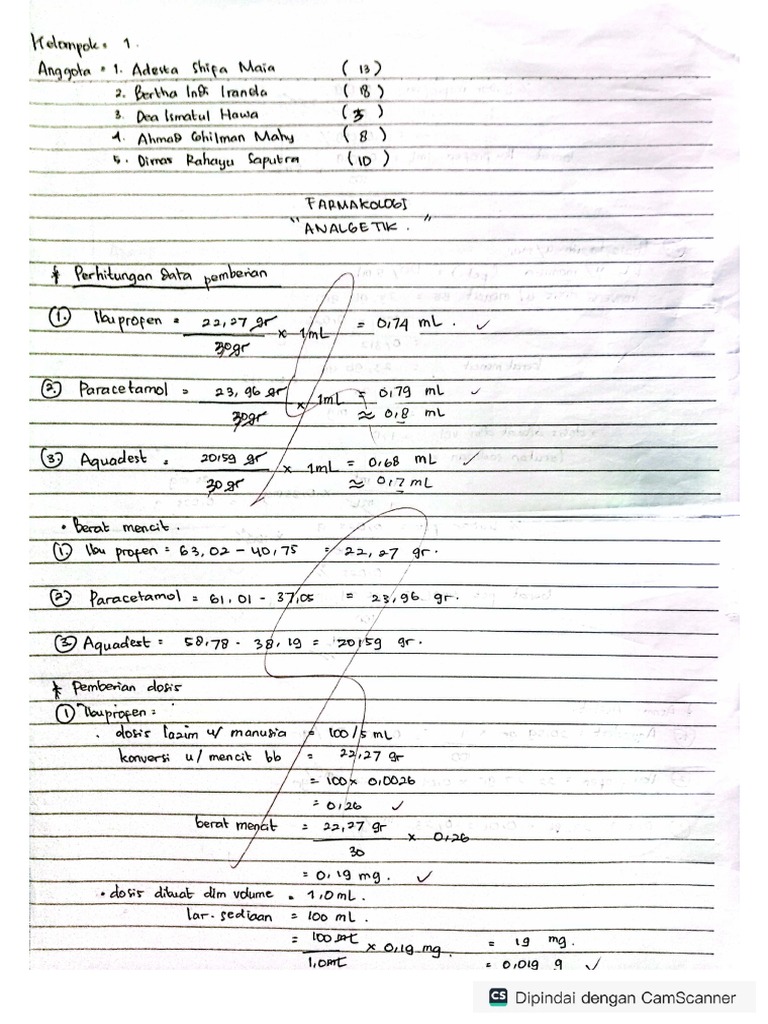 Kelompok : 1.
Anggota : 1. Adesta Shifa Maia (13)
2. Bertha Inti Iranda (18)
3. Dea Ismatul Hawa (5)
4. Ahmad Gohilman Mahy (8)
5. Dimas Rahayu Saputra (10)
FARMAKOLOGI
"ANALGETIK."
* Perhitungan Data pemberian
1. Ibuprofen = 22,27 gr / 30gr × 1mL = 0,74 mL. ✓
2. Paracetamol = 23,96 gr / 30gr × 1mL = 0,79 mL ✓
≈ 0,8 mL
3. Aquadest = 20,59 gr / 30 gr × 1mL = 0,68 mL ✓
≈ 0,7 mL
• Berat mencit.
1. Ibu profen = 63,02 - 40,75 = 22,27 gr.
2. Paracetamol = 61,01 - 37,05 = 23,96 gr.
3. Aquadest = 58,78 - 38,19 = 20,59 gr.
* Pemberian dosis
1. Ibuprofen =
• dosis lazim u/ manusia = 100/5 mL
konversi u/ mencit bb = 22,27 gr
= 100 × 0,0026
= 0,26 ✓
berat mencit = 22,27 gr / 30 × 0,26
= 0,19 mg. ✓
• dosis dibuat dlm volume = 1,0 mL.
lar. sediaan = 100 mL.
= 100 mL / 1,0 mL × 0,19 mg = 19 mg.
= 0,019 g ✓
CS Dipindai dengan CamScanner